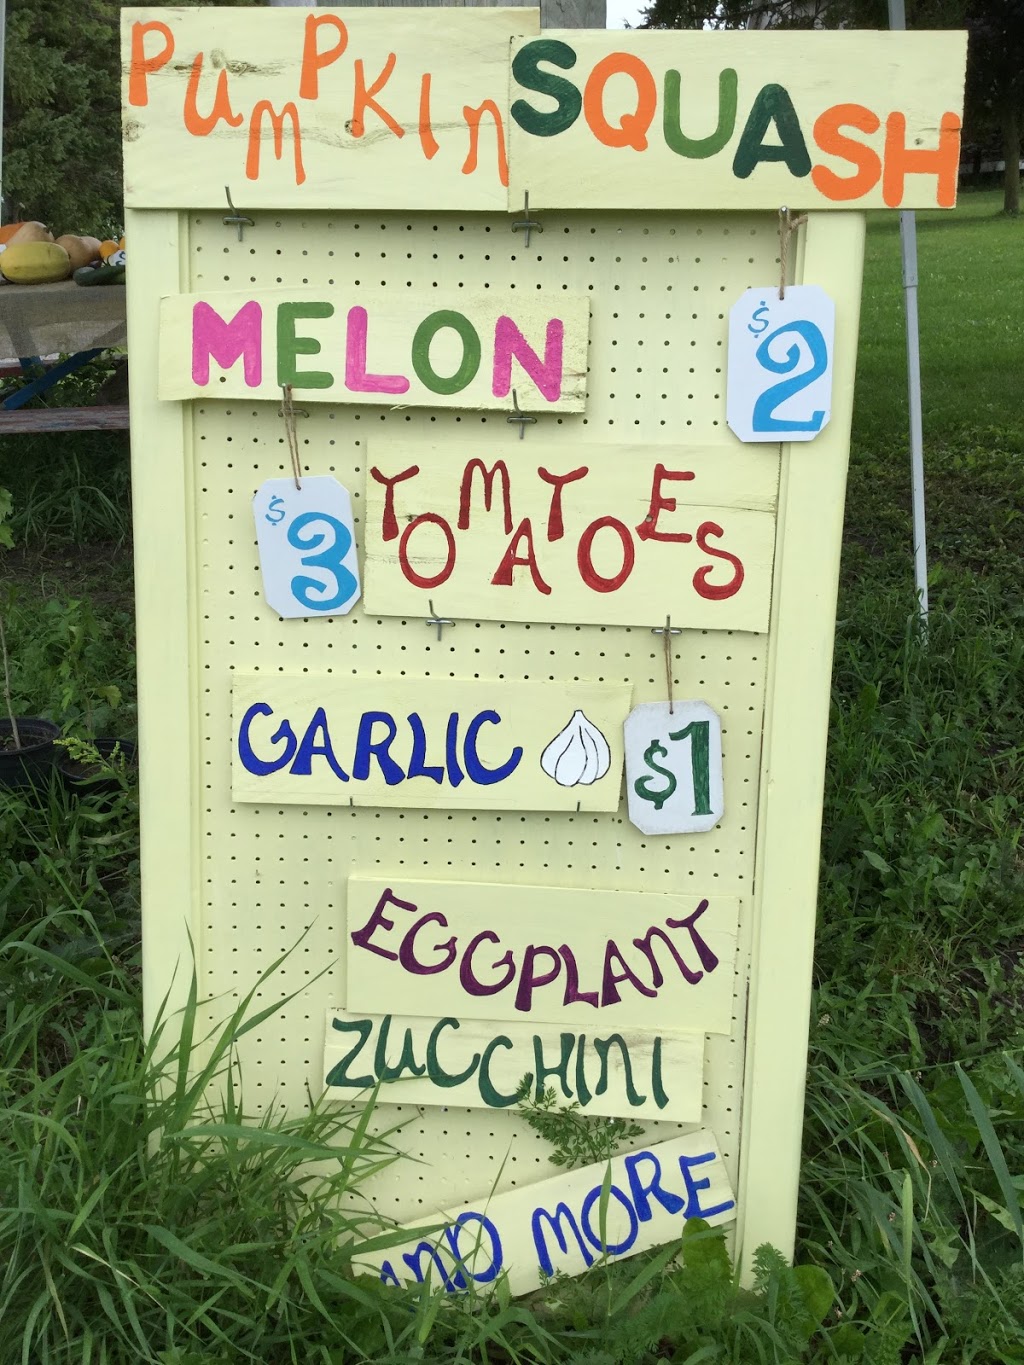 PUMPKIN SQUASH
MELON $2
$3 TOMATOES
GARLIC $1
EGGPLANT
ZUCCHINI
AND MORE